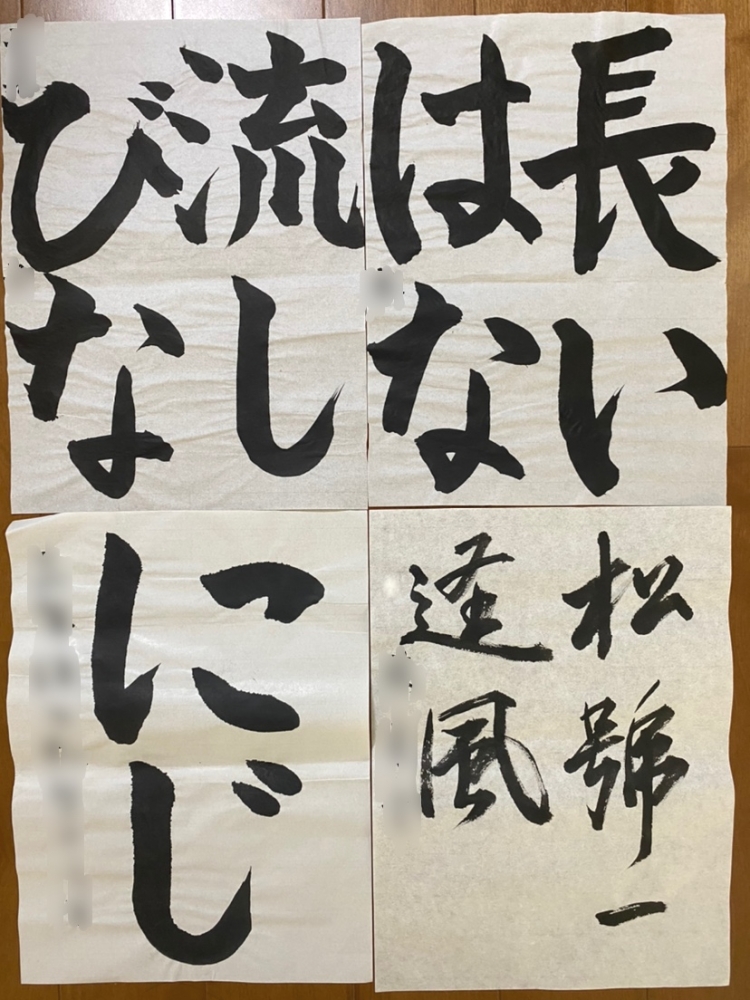 長い
はな
流し
びな
松號一
逢風
にじ